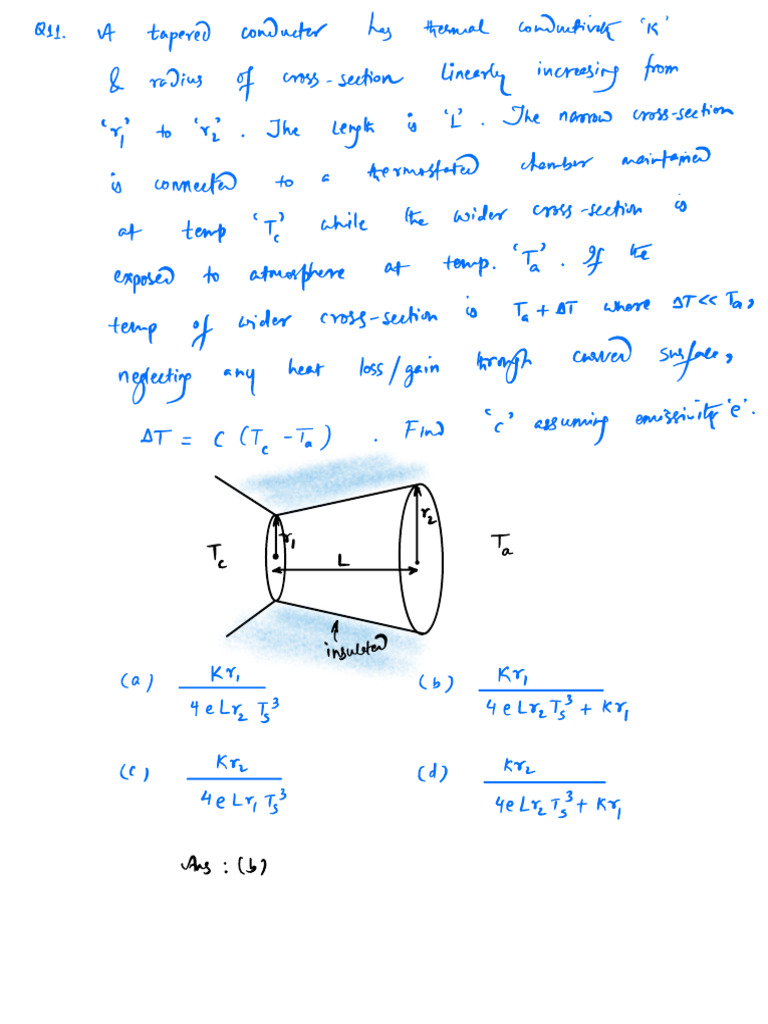 Q11. A tapered conductor has thermal conductivity 'K'
& radius of cross-section linearly increasing from
'r₁' to 'r₂'. The length is 'L'. The narrow cross-section
is connected to a thermostated chamber maintained
at temp 'T_c' while the wider cross-section is
exposed to atmosphere at temp. 'T_a'. If the
temp of wider cross-section is T_a + ΔT where ΔT << T_a,
neglecting any heat loss/gain through curved surface,
ΔT = C (T_c - T_a). Find 'c' assuming emissivity 'e'.
r₂
r₁
T_c
L
T_a
insulated
(a) Kr₁ / 4eLr₂T_s³ (b) Kr₁ / 4eLr₂T_s³ + Kr₁
(c) Kr₂ / 4eLr₁T_s³ (d) Kr₂ / 4eLr₂T_s³ + Kr₁
Ans : (b)